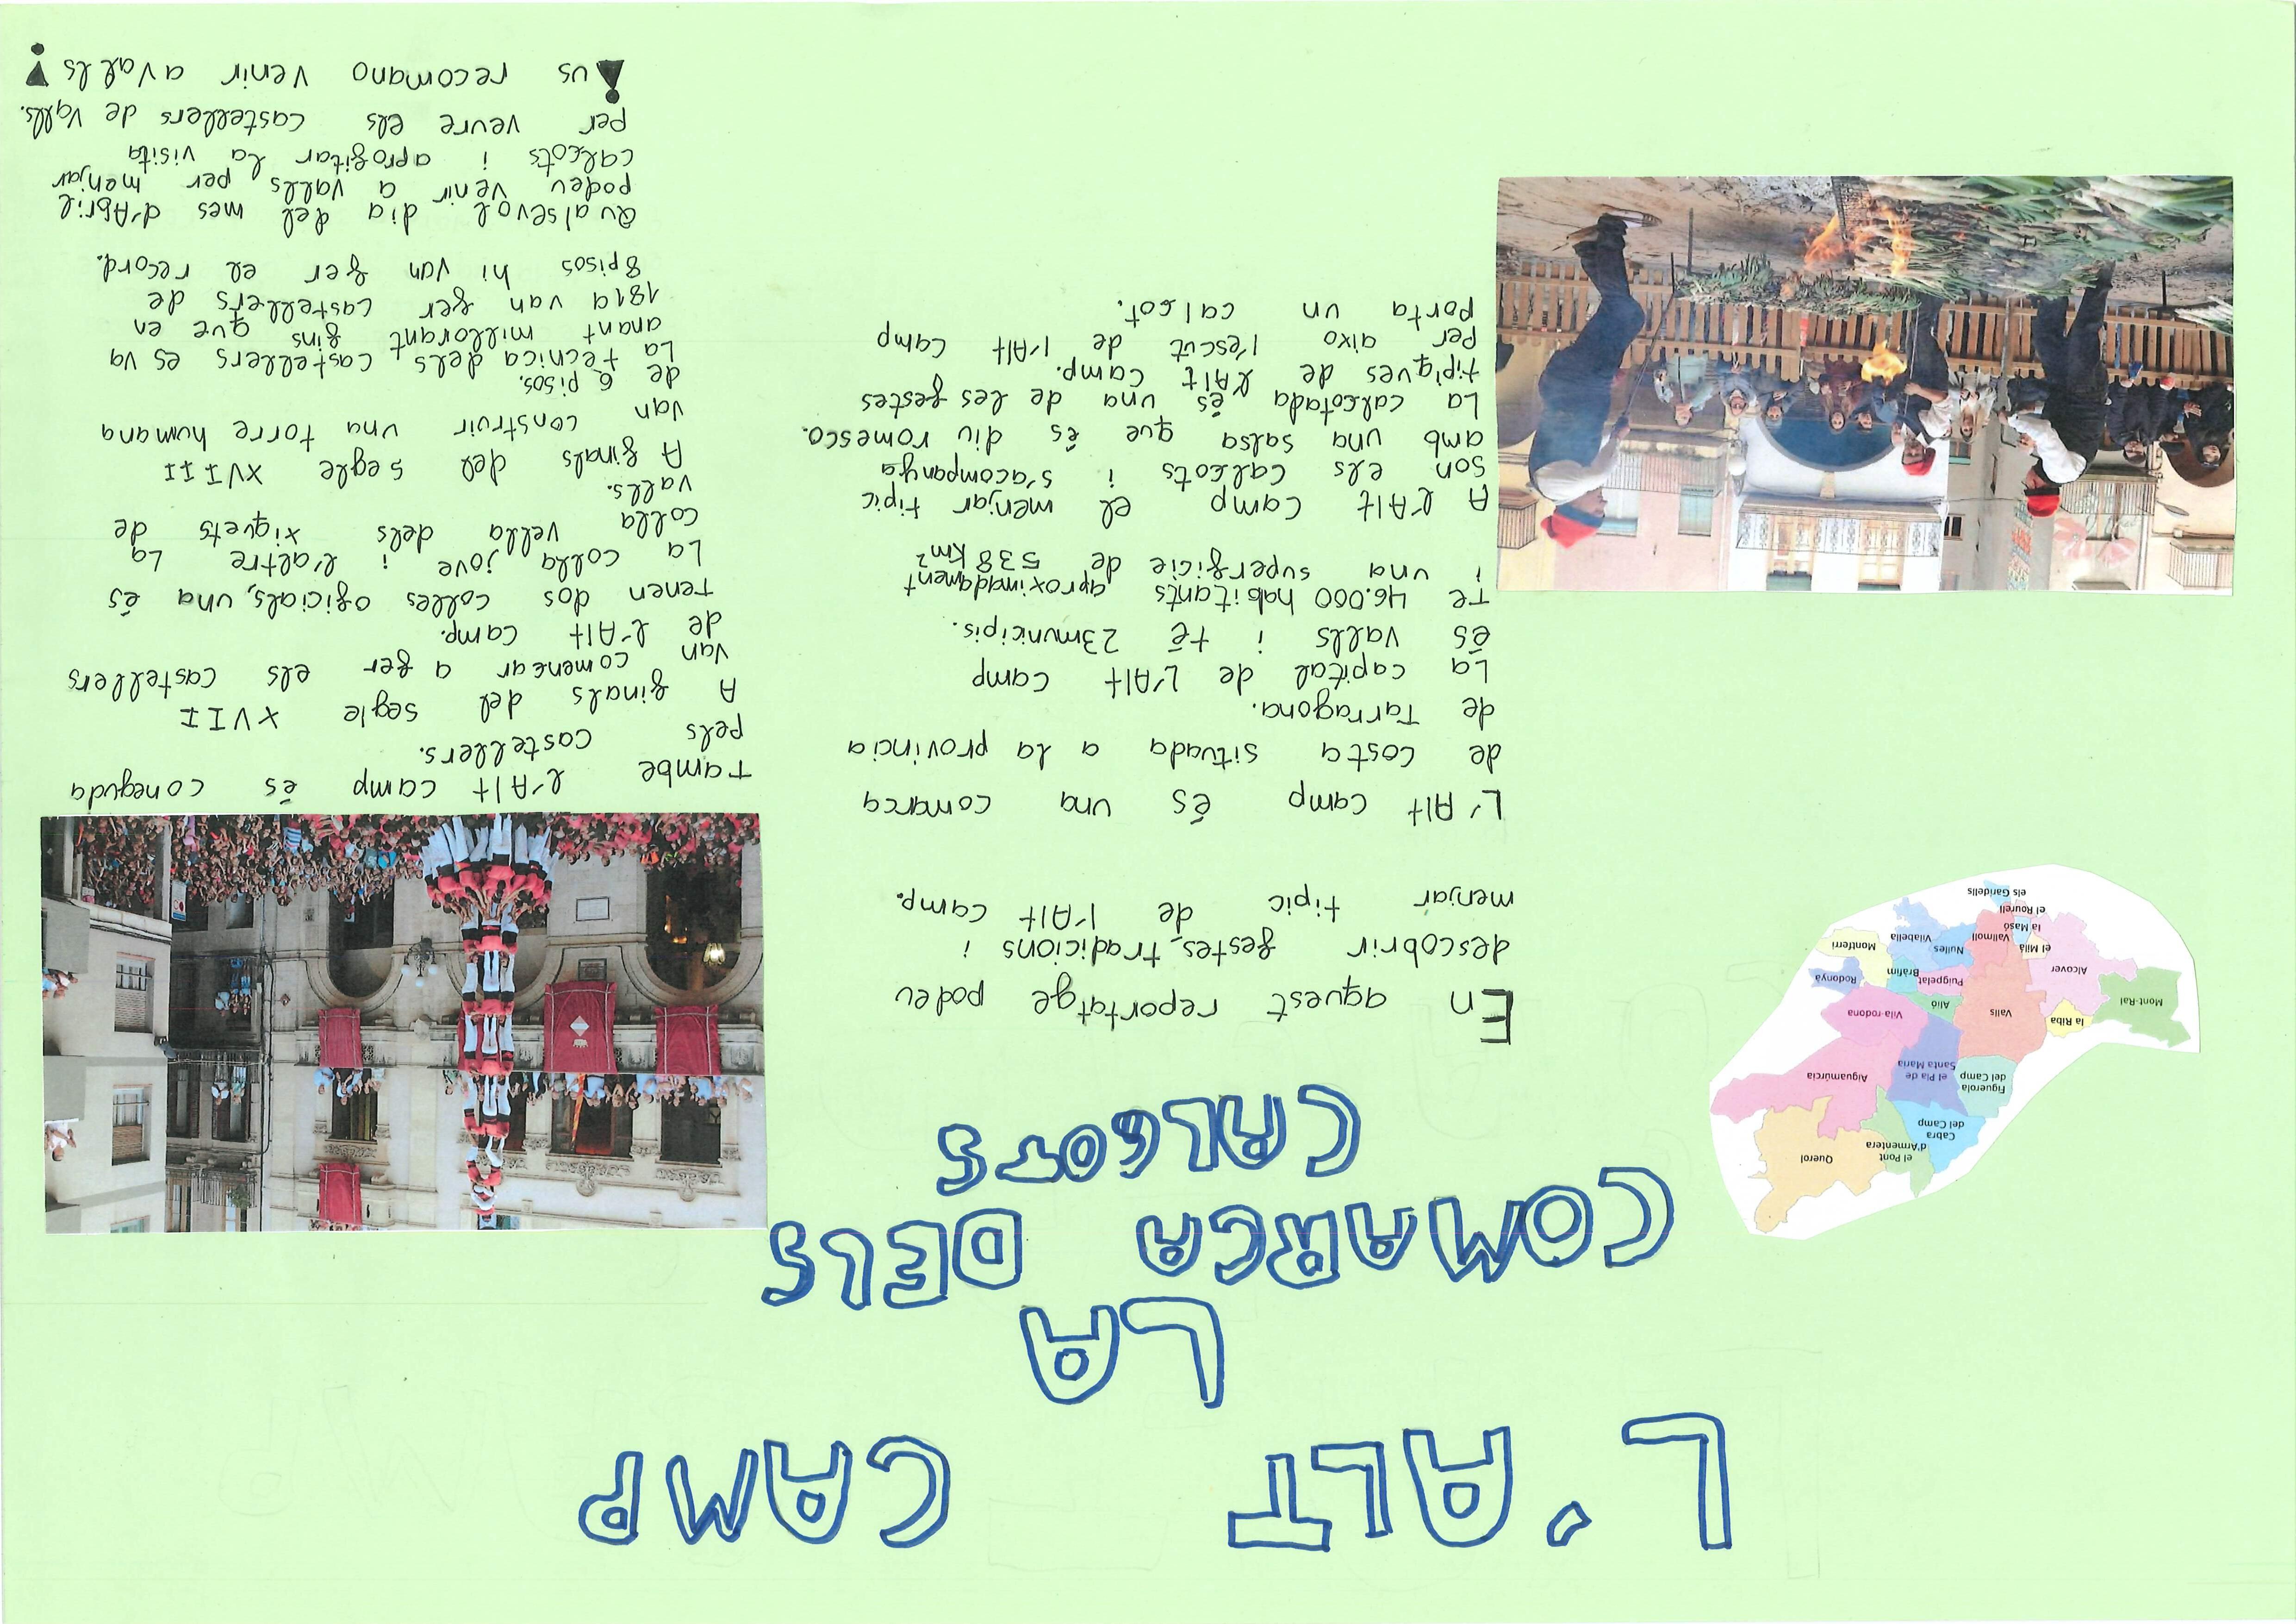 L'ALT CAMP
LA
COMARCA DELS
CALÇOTS
En aquest reportatge podeu
descobrir festes, tradicions i
menjar tipic de l'Alt camp.
L'Alt camp és una comarca
de costa situada a la provincia
de Tarragona.
La capital de L'Alt camp
és valls i té 23municipis.
Te 46.000 habitants aproximadament
i una superficie de 538 km²
A l'Alt Camp el menjar tipic
son els calçots i s'acompanya
amb una salsa que és diu romesco.
La calçotada és una de les festes
tipiques de l'Alt camp.
Per aixo l'escut de l'Alt camp
porta un calçot.
Tambe l'Alt camp és coneguda
pels castellers.
A finals del segle XVII
van començar a fer els castellers
de l'Alt camp.
tenen dos colles oficials, una és
La colla jove i l'altre La
colla vella dels xiquets de
valls.
A finals del segle XVIII
van construir una torre humana
de 6 pisos.
La tecnica dels castellers es va
anant millorant fins que en
1819 van fer castellers de
8pisos hi van fer el record.
Qualsevol dia del mes d'Abril
podeu venir a valls per menjar
calçots i aprofitar la visita
per veure els castellers de Valls.
!us recomano venir a Valls¡
Querol
el Pont
d'Armentera
Cabra
del Camp
Aiguamúrcia
Figuerola
del Camp
el Pla de
Santa Maria
Mont-Ral
la Riba
Valls
Alió
Vila-rodona
Alcover
Puigpelat
Bràfim
Rodonyà
el Milà
Vallmoll
Nulles
Vilabella
Montferri
la Masó
el Rourell
els Garidells